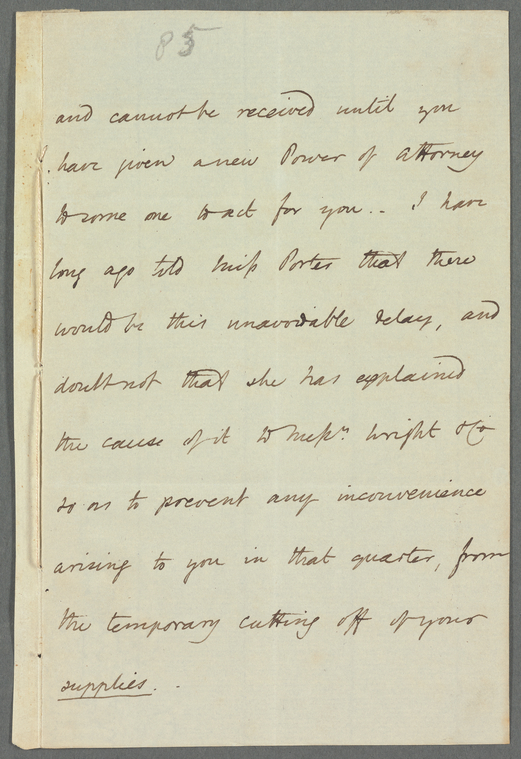 85
and cannot be received until you
have given a new Power of Attorney
to some one to act for you.. I have
long ago told Miss Porter that there
would be this unavoidable delay, and
doubt not that she has explained
the cause of it to Mess.rs Wright & Co
so as to prevent any inconvenience
arising to you in that quarter, from
the temporary cutting off of your
supplies. .